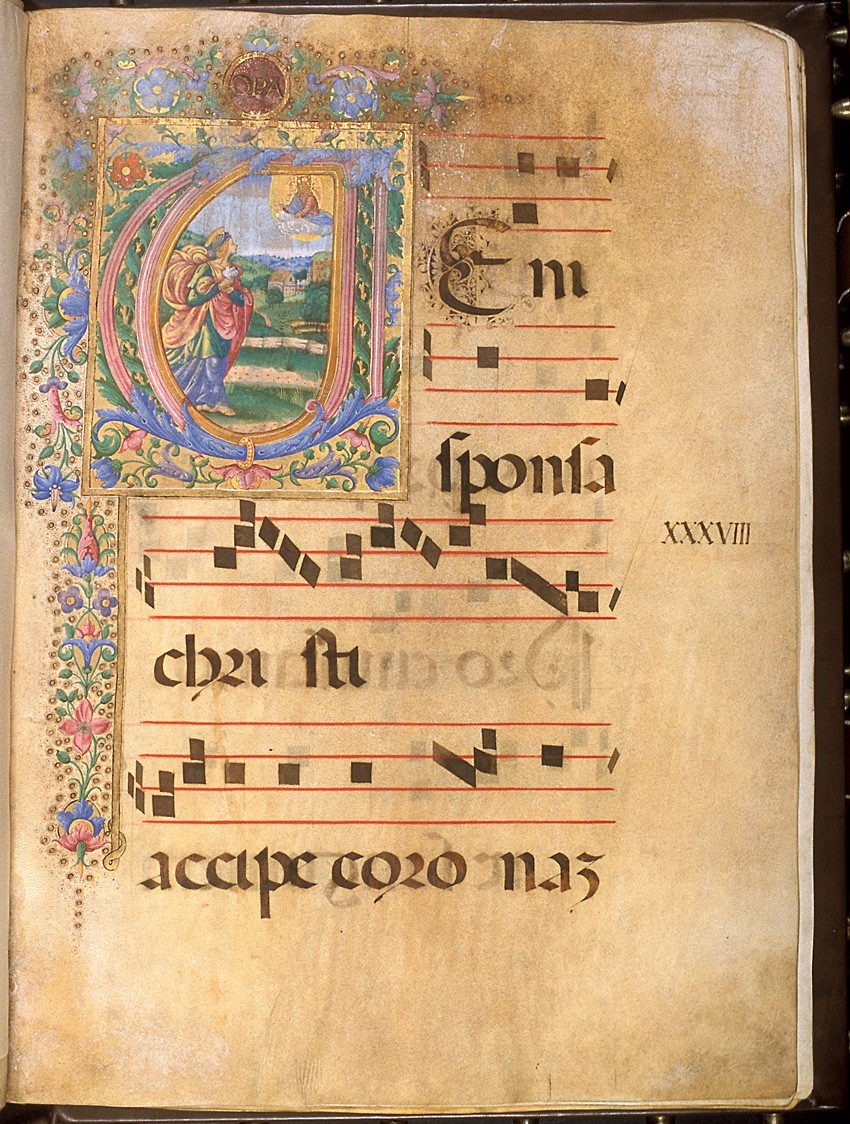 OPA
VEni
sponsa
XXXVIII
chri sti
accipe coro naʒ